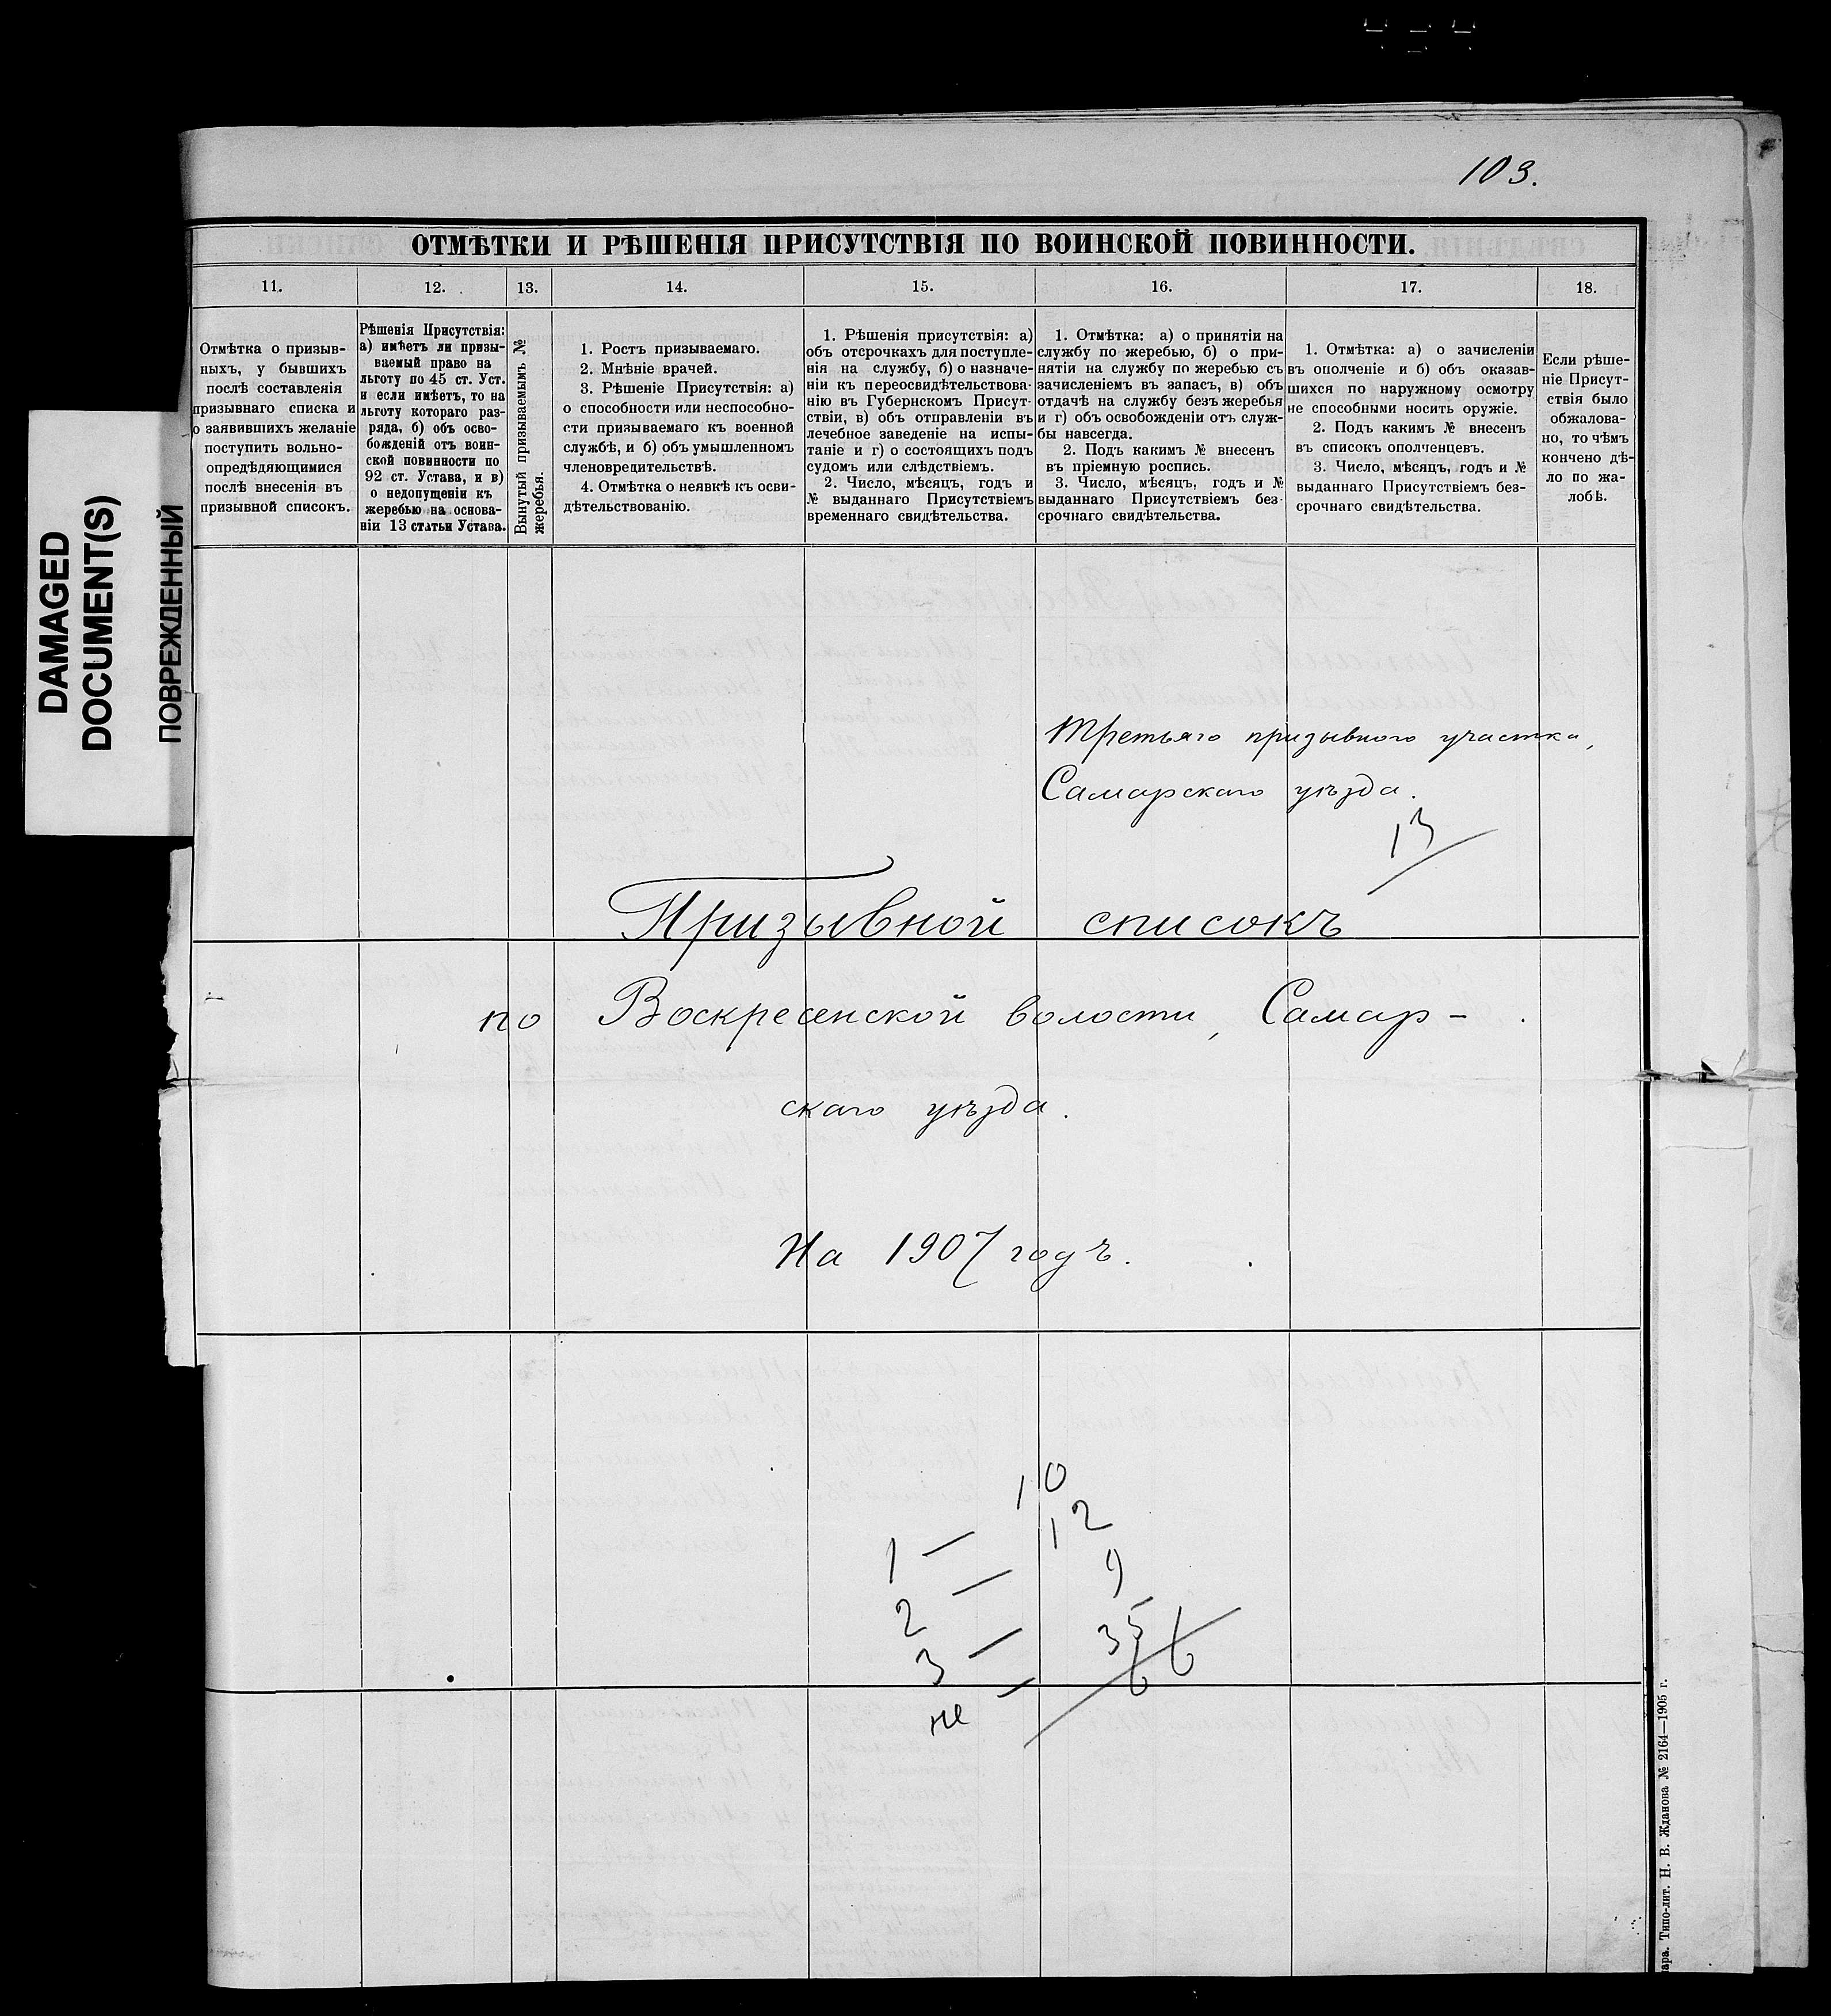 103.
ОТМѢТКИ И РѢШЕНІЯ ПРИСУТСТВІЯ ПО ВОИНСКОЙ ПОВИННОСТИ.
11.
12.
13.
14.
15.
16.
17.
18.
Отмѣтка о призыв-
ныхъ, у бывшихъ
послѣ составленія
призывнаго списка и
о заявившихъ желаніе
поступить вольно-
опредѣдяющимися
послѣ внесенія въ
призывной списокъ.
Рѣшенія Присутствія:
а) имѣетъ ли призы-
ваемый право на
льготу по 45 ст. Уст.
и если имѣетъ, то на
льготу котораго раз-
ряда, б) объ осво-
божденій отъ воин-
ской повинности по
92 ст. Устава, и в)
о недопущеніи къ
жеребью на основа-
ніи 13 статьи Устава.
Вынутый призываемымъ №
жеребья.
1. Ростъ призываемаго.
2. Мнѣніе врачей.
3. Рѣшеніе Присутствія: а)
о способности или неспособно-
сти призываемаго къ военной
службѣ, и б) объ умышленномъ
членовредительствѣ.
4. Отмѣтка о неявкѣ къ осви-
дѣтельствованію.
1. Рѣшенія присутствія: а)
объ отсрочкахъ для поступле-
нія на службу, б) о назначе-
ніи къ переосвидѣтельствова-
нію въ Губернскомъ Присут-
ствіи, в) объ отправленіи въ
лечебное заведеніе на испы-
таніе и г) о состоящихъ подъ
судомъ или слѣдствіемъ.
2. Число, мѣсяцъ, годъ и
№ выданнаго Присутствіемъ
временнаго свидѣтельства.
1. Отмѣтка: а) о принятіи на
службу по жеребью, б) о при-
нятіи на службу по жеребью съ
зачисленіемъ въ запасъ, в) объ
отдачѣ на службу безъ жеребья
и г) объ освобожденіи отъ служ-
бы навсегда.
2. Подъ какимъ № внесенъ
въ пріемную роспись.
3. Число, мѣсяцъ, годъ и №
выданнаго Присутствіемъ без-
срочнаго свидѣтельства.
1. Отмѣтка: а) о зачисленіи
въ ополченіе и б) объ оказав-
шихся по наружному осмотру
не способными носить оружіе.
2. Подъ какимъ № внесенъ
въ списокъ ополченцевъ.
3. Число, мѣсяцъ, годъ и №
выданнаго Присутствіемъ без-
срочнаго свидѣтельства.
Если рѣше-
ніе Присут-
ствія было
обжалова-
но, то чѣмъ
кончено дѣ-
ло по жа-
лобѣ.
DAMAGED
DOCUMENT(S)
ПОВРЕЖДЕННЫЙ
Третьяго призывного участка,
Самарскаго уѣзда.
13
Призывной списокъ
по Воскресенской волости, Самар-
скаго уѣзда.
На 1907 годъ.
1 — 10
2 — 12
3 — 9
не — 35
66
ара. Типо-лит. Н. В. Жданова № 2164—1905 г.